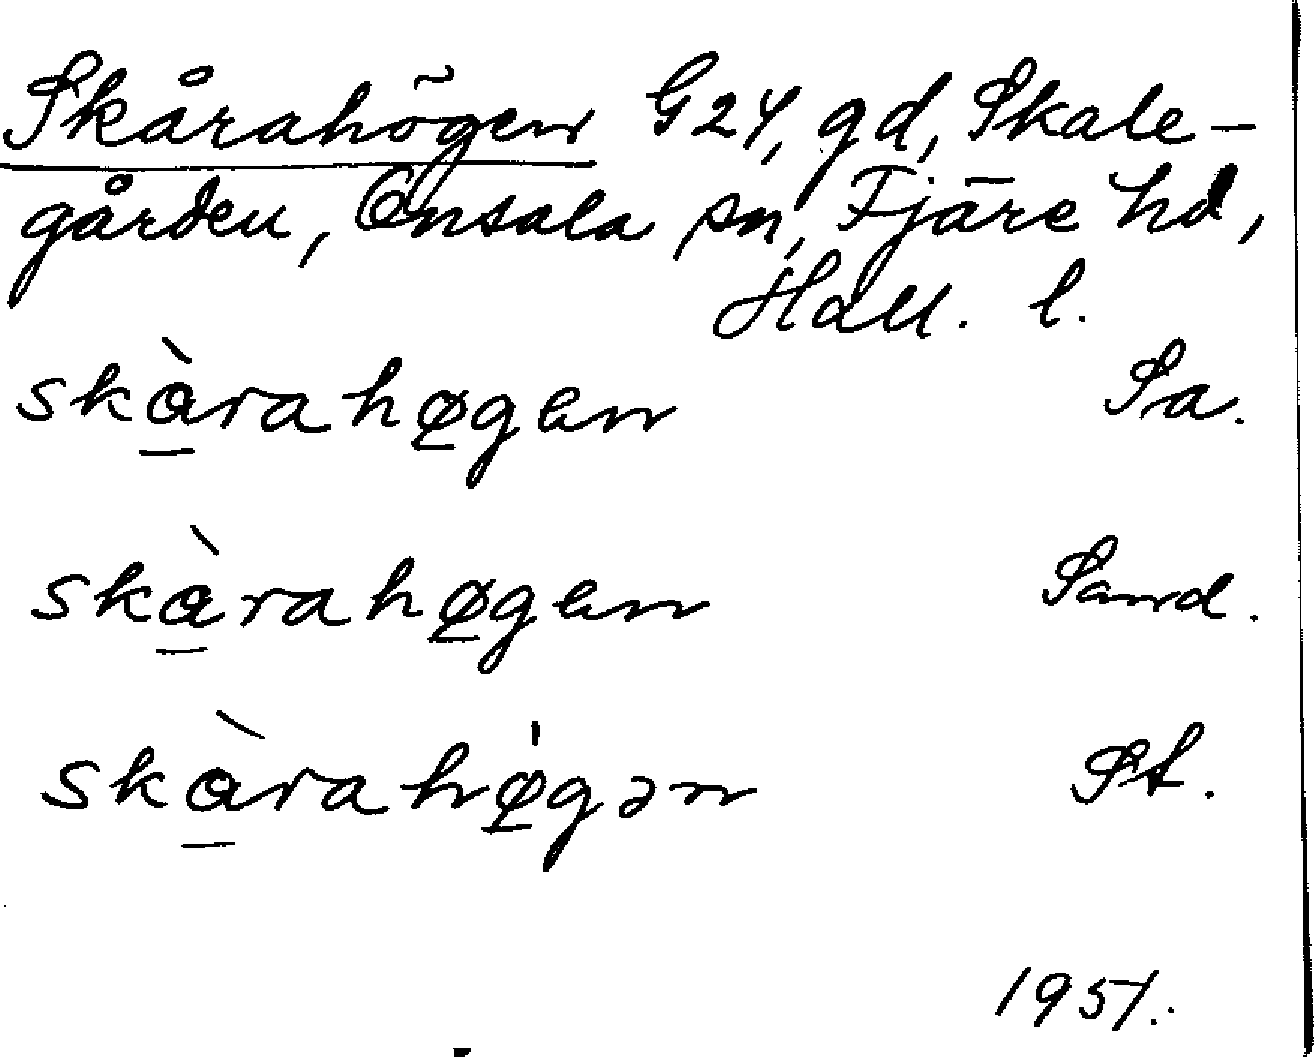 Skårahögen G24, gd, Skale-
gården, Onsala sn, Fjäre hd,
Hall. l.
skàrahøgen Sa.
skàrahøgen Sand.
skàrahø̍gən St.
1951.